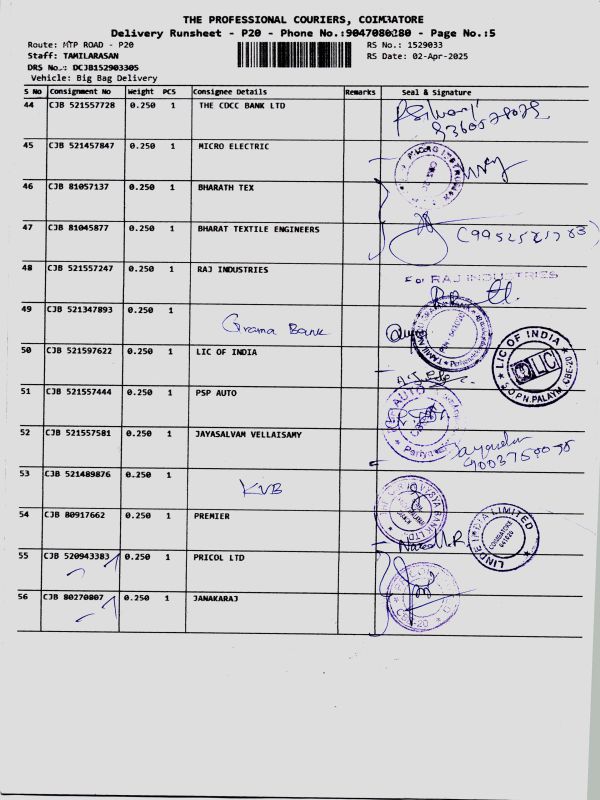 THE PROFESSIONAL COURIERS, COIMBATORE
Delivery Runsheet - P20 - Phone No.:9047080280 - Page No.:5
Route: MTP ROAD - P20 RS No.: 1529033
Staff: TAMILARASAN RS Date: 02-Apr-2025
DRS No.: DCJB152903305
Vehicle: Big Bag Delivery
S No Consignment No Weight PCS Consignee Details Remarks Seal & Signature
44 CJB 521557728 0.250 1 THE CDCC BANK LTD
45 CJB 521457847 0.250 1 MICRO ELECTRIC
46 CJB 81057137 0.250 1 BHARATH TEX
47 CJB 81045877 0.250 1 BHARAT TEXTILE ENGINEERS
48 CJB 521557247 0.250 1 RAJ INDUSTRIES
For RAJ INDUSTRIES
49 CJB 521347893 0.250 1
Grama Bank
50 CJB 521597622 0.250 1 LIC OF INDIA
LIC OF INDIA
LIC
S.O.P.N.PALAYM CBE-20
51 CJB 521557444 0.250 1 PSP AUTO
52 CJB 521557581 0.250 1 JAYASALVAM VELLAISAMY
53 CJB 521489876 0.250 1
KVB
54 CJB 80917662 0.250 1 PREMIER
LINDE INDIA LIMITED
COIMBATORE
641020
55 CJB 520943383 0.250 1 PRICOL LTD
56 CJB 80270807 0.250 1 JANAKARAJ
CBE-20